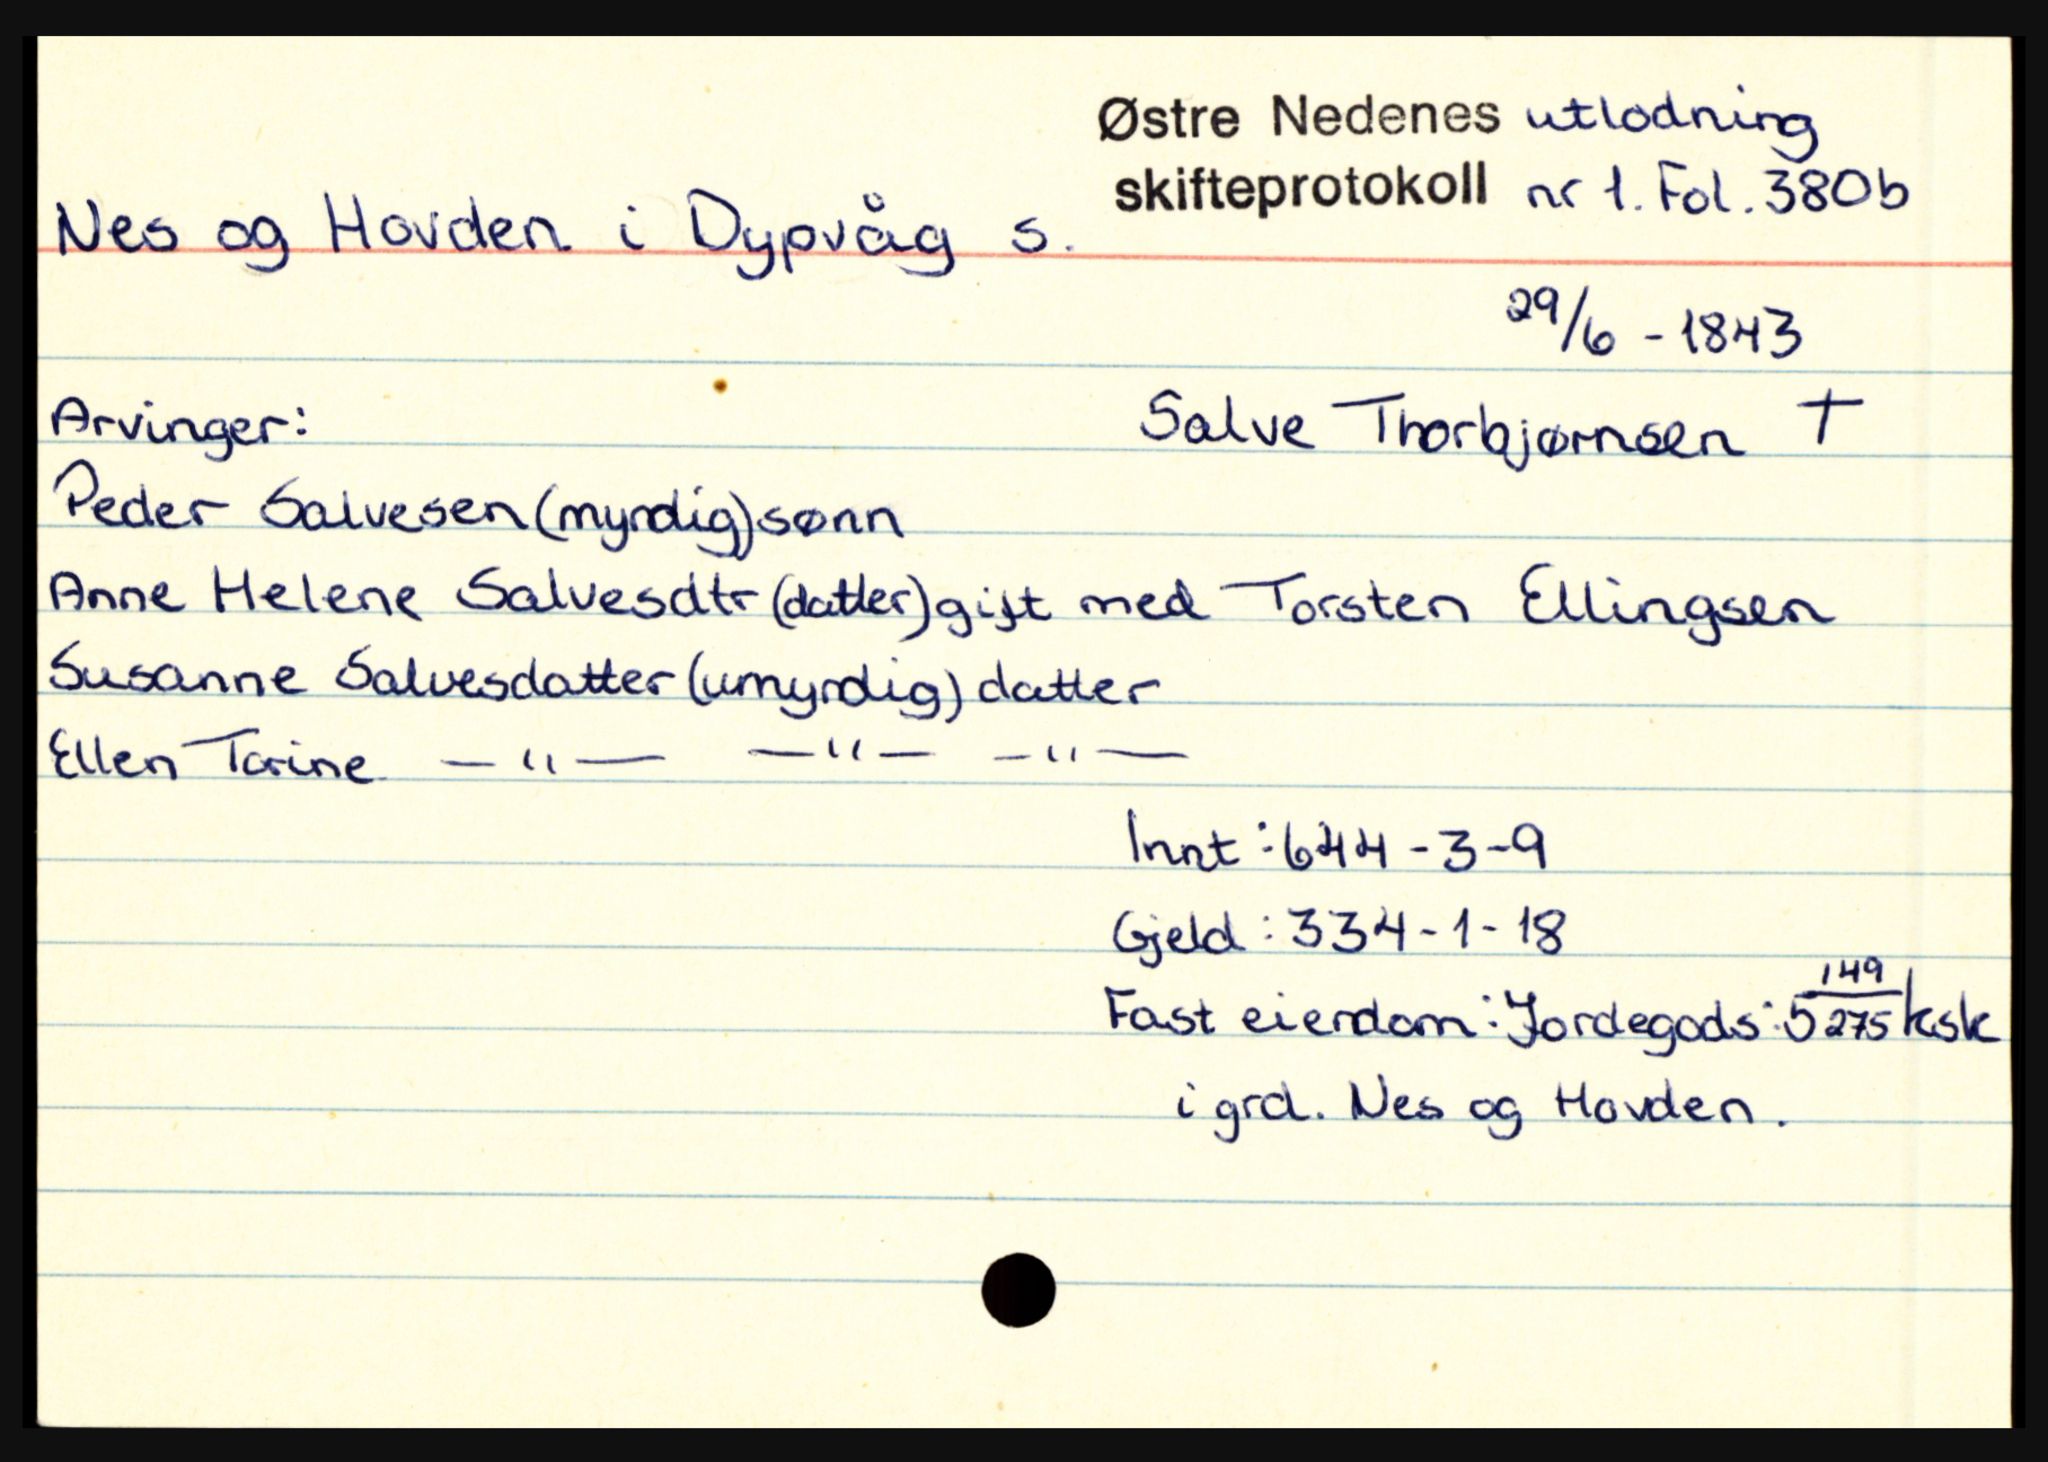 Østre Nedenes utlodning
skifteprotokoll nr 1. Fol. 380b
Nes og Hovden i Dypvåg s.
29/6 - 1843
Arvinger: Salve Thorbjørnsen †
Peder Salvesen (myndig) sønn
Anne Helene Salvesdtr (datter) gift med Torsten Ellingsen
Susanne Salvesdatter (umyndig) datter
Ellen Tarine —"— —"— —"—
Innt : 644 - 3 - 9
Gjeld : 334 - 1 - 18
Fast eiendom : Jordegods : 5 149/275 ksk
i grd. Nes og Hovden.